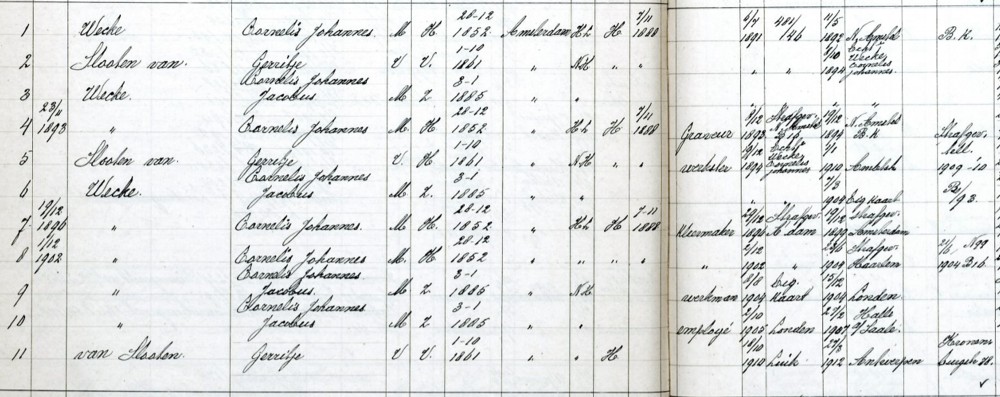 1 Wecke Cornelis Johannes. M H 28-12 1852 Amsterdam HL H 7/11 1888 1891 481/146 11/5 1892 N. Amstel B.K.
2 Slooten van. Gerritje V V. 1-10 1861 " NH " " " " 7/10 1894 Echt Wecke Cornelis Johannes.
3 Wecke. Cornelis Johannes Jacobus M Z 3-1 1885 " "
4 23/11 1893 " Cornelis Johannes M H 28-12 1852 " HL H 7/11 1888 Graveur 1893 Strafgev. N. Amstel 1894 N. Amstel B.K Strafgev.
5 Slooten van. Gerritje V. H 1-10 1861 " NH " " werkster 1894 Echt Wecke Cornelis Johannes 1/1 1910 1909-'10
6 Wecke. Cornelis Johannes Jacobus M Z. 3-1 1885 " " " " 1904 Eig Kaart B/93.
7 19/12 1896 " Cornelis Johannes. M H 28-12 1852 " HL H 7-11 1888 Kleermaker 1896 Strafgev. A'dam 1899 Strafgev. Amsterdam
8 1/12 1902 " Cornelis Johannes M H 28-12 1852 " " " " " 2/12 1902 " 1904 Strafgev. Haarlem N99 1904 B16
9 " Cornelis Johannes Jacobus. M Z 3-1 1885 " NH werkman 1904 Eig. Kaart 15/12 1904 Londen
10 " Cornelis Johannes Jacobus M Z 3-1 1885 " " employé 2/10 1905 Londen 1907 Halle a/Saale.
11 van Slooten. Gerritje V V. 1-10 1861 " " H 18/10 1910 Luik 1912 Antwerpen